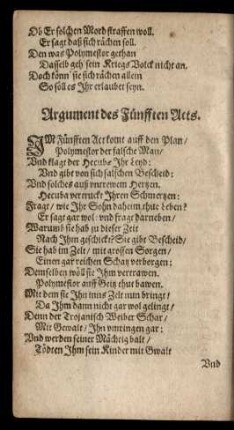 Ob Er solchen Mord straffen woll.
Er sagt daß sich rächen soll.
Den was Polymestor gethan
Dasselb geh sein Kriegs Volck nicht an.
Doch könn sie sich rächen allein
So soll es Ihr erlaubet seyn.
Argument des Fünfften Acts.
IM Fünfften Act komt auff den Plan /
Polymestor der falsche Man /
Vnd klagt der Hecuba Ihr Leyd:
Vnd gibt von sich falschen Bescheid:
Vnd solches auß vntrewem Hertzen.
Hecuba verdruckt Ihren Schmertzen:
Fragt / wie Ihr Sohn daheim thut leben?
Er sagt gar wol: vnd fragt darneben /
Warumb sie hab zu dieser Zeit
Nach Ihm geschickt? Sie gibt Bescheid /
Sie hab im Zelt / mit grossen Sorgen /
Einen gar reichen Schatz verborgen:
Demselben wöll sie Ihm vertrawen.
Polymestor auff Geitz thut bawen.
Mit dem sie Ihn inns Zelt nun bringt /
Da Ihm dann nicht gar wol gelingt /
Denn der Trojanisch Weiber Schar /
Mit Gewalt / Ihn vmringen gar:
Vnd werden seiner Mächtig balt /
Tödten Ihm sein Kinder mit Gwalt
Vnd